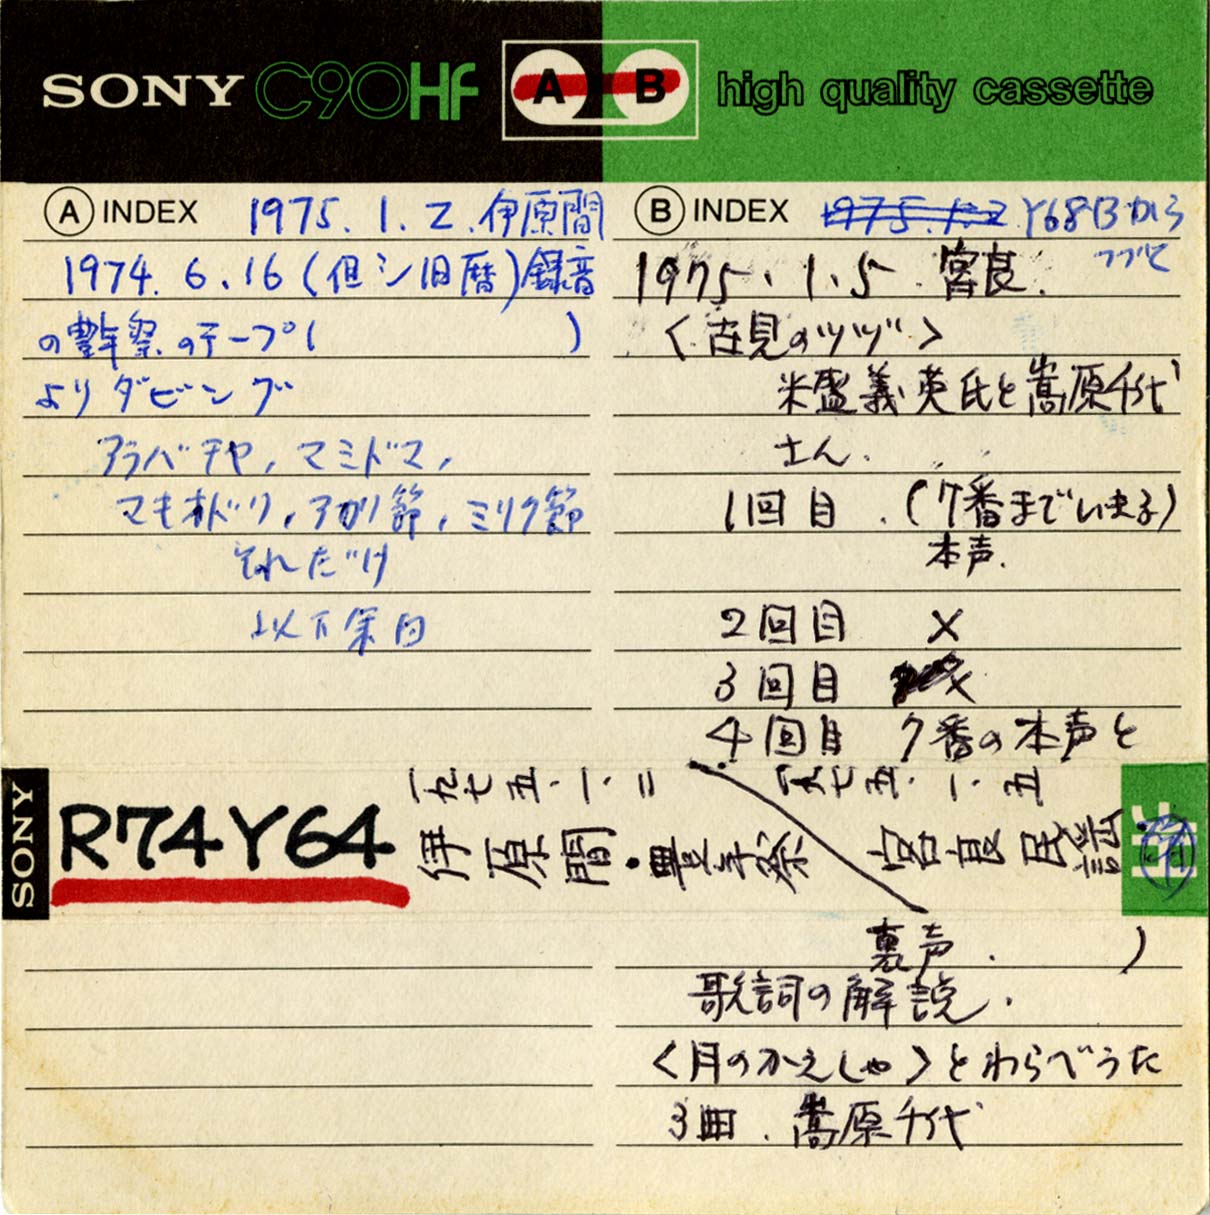 SONY C90HF A B high quality cassette
A INDEX 1975.1.2.伊原間
1974.6.16(但シ旧暦)録音
の豊年祭のテープ( )
よりダビング
アラバチヤ,マミドマ,
マキオドリ,アガリ節,ミリク節
それだけ
以下余白
B INDEX 1975.1.2 Y68Bから
つづく
1975.1.5.宮良.
<古見のツヅ>
米盛義英氏と嵩原千代
さん.
1回目.(7番までいまる)
本声.
2回目 ×
3回目 ×
4回目 7番の本声と
SONY
R74Y64
一九七五、一、二
伊原間・豊年祭
一九七五、一、五
宮良民謡
裏声. )
歌詞の解説.
<月のかえしゃ>とわらべうた
3曲.嵩原千代